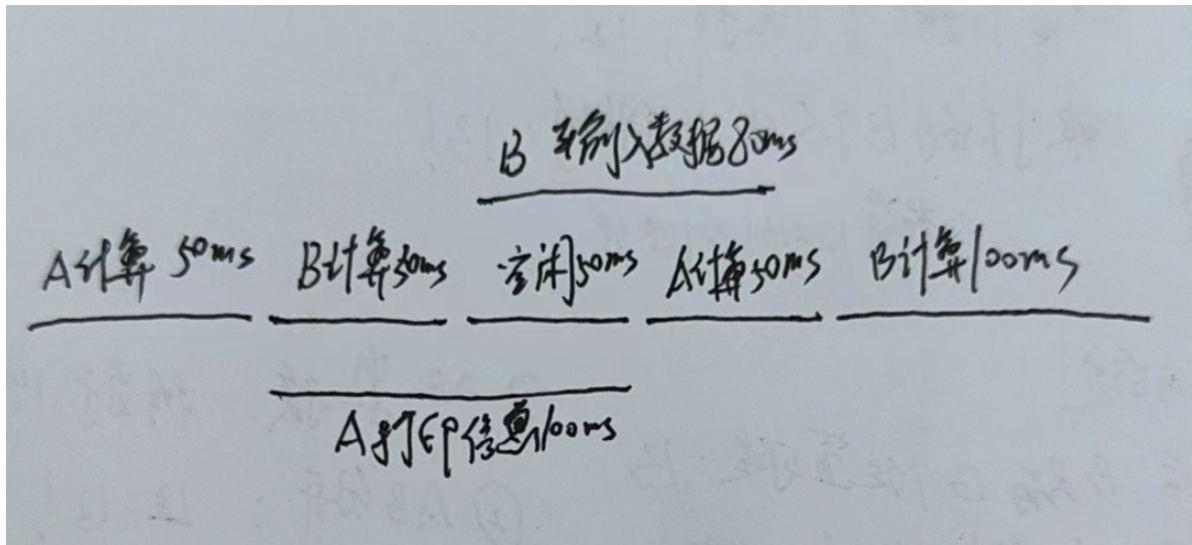 B 输入数据80ms
A计算 50ms B计算50ms 空闲50ms A计算50ms B计算100ms
A打印信息100ms